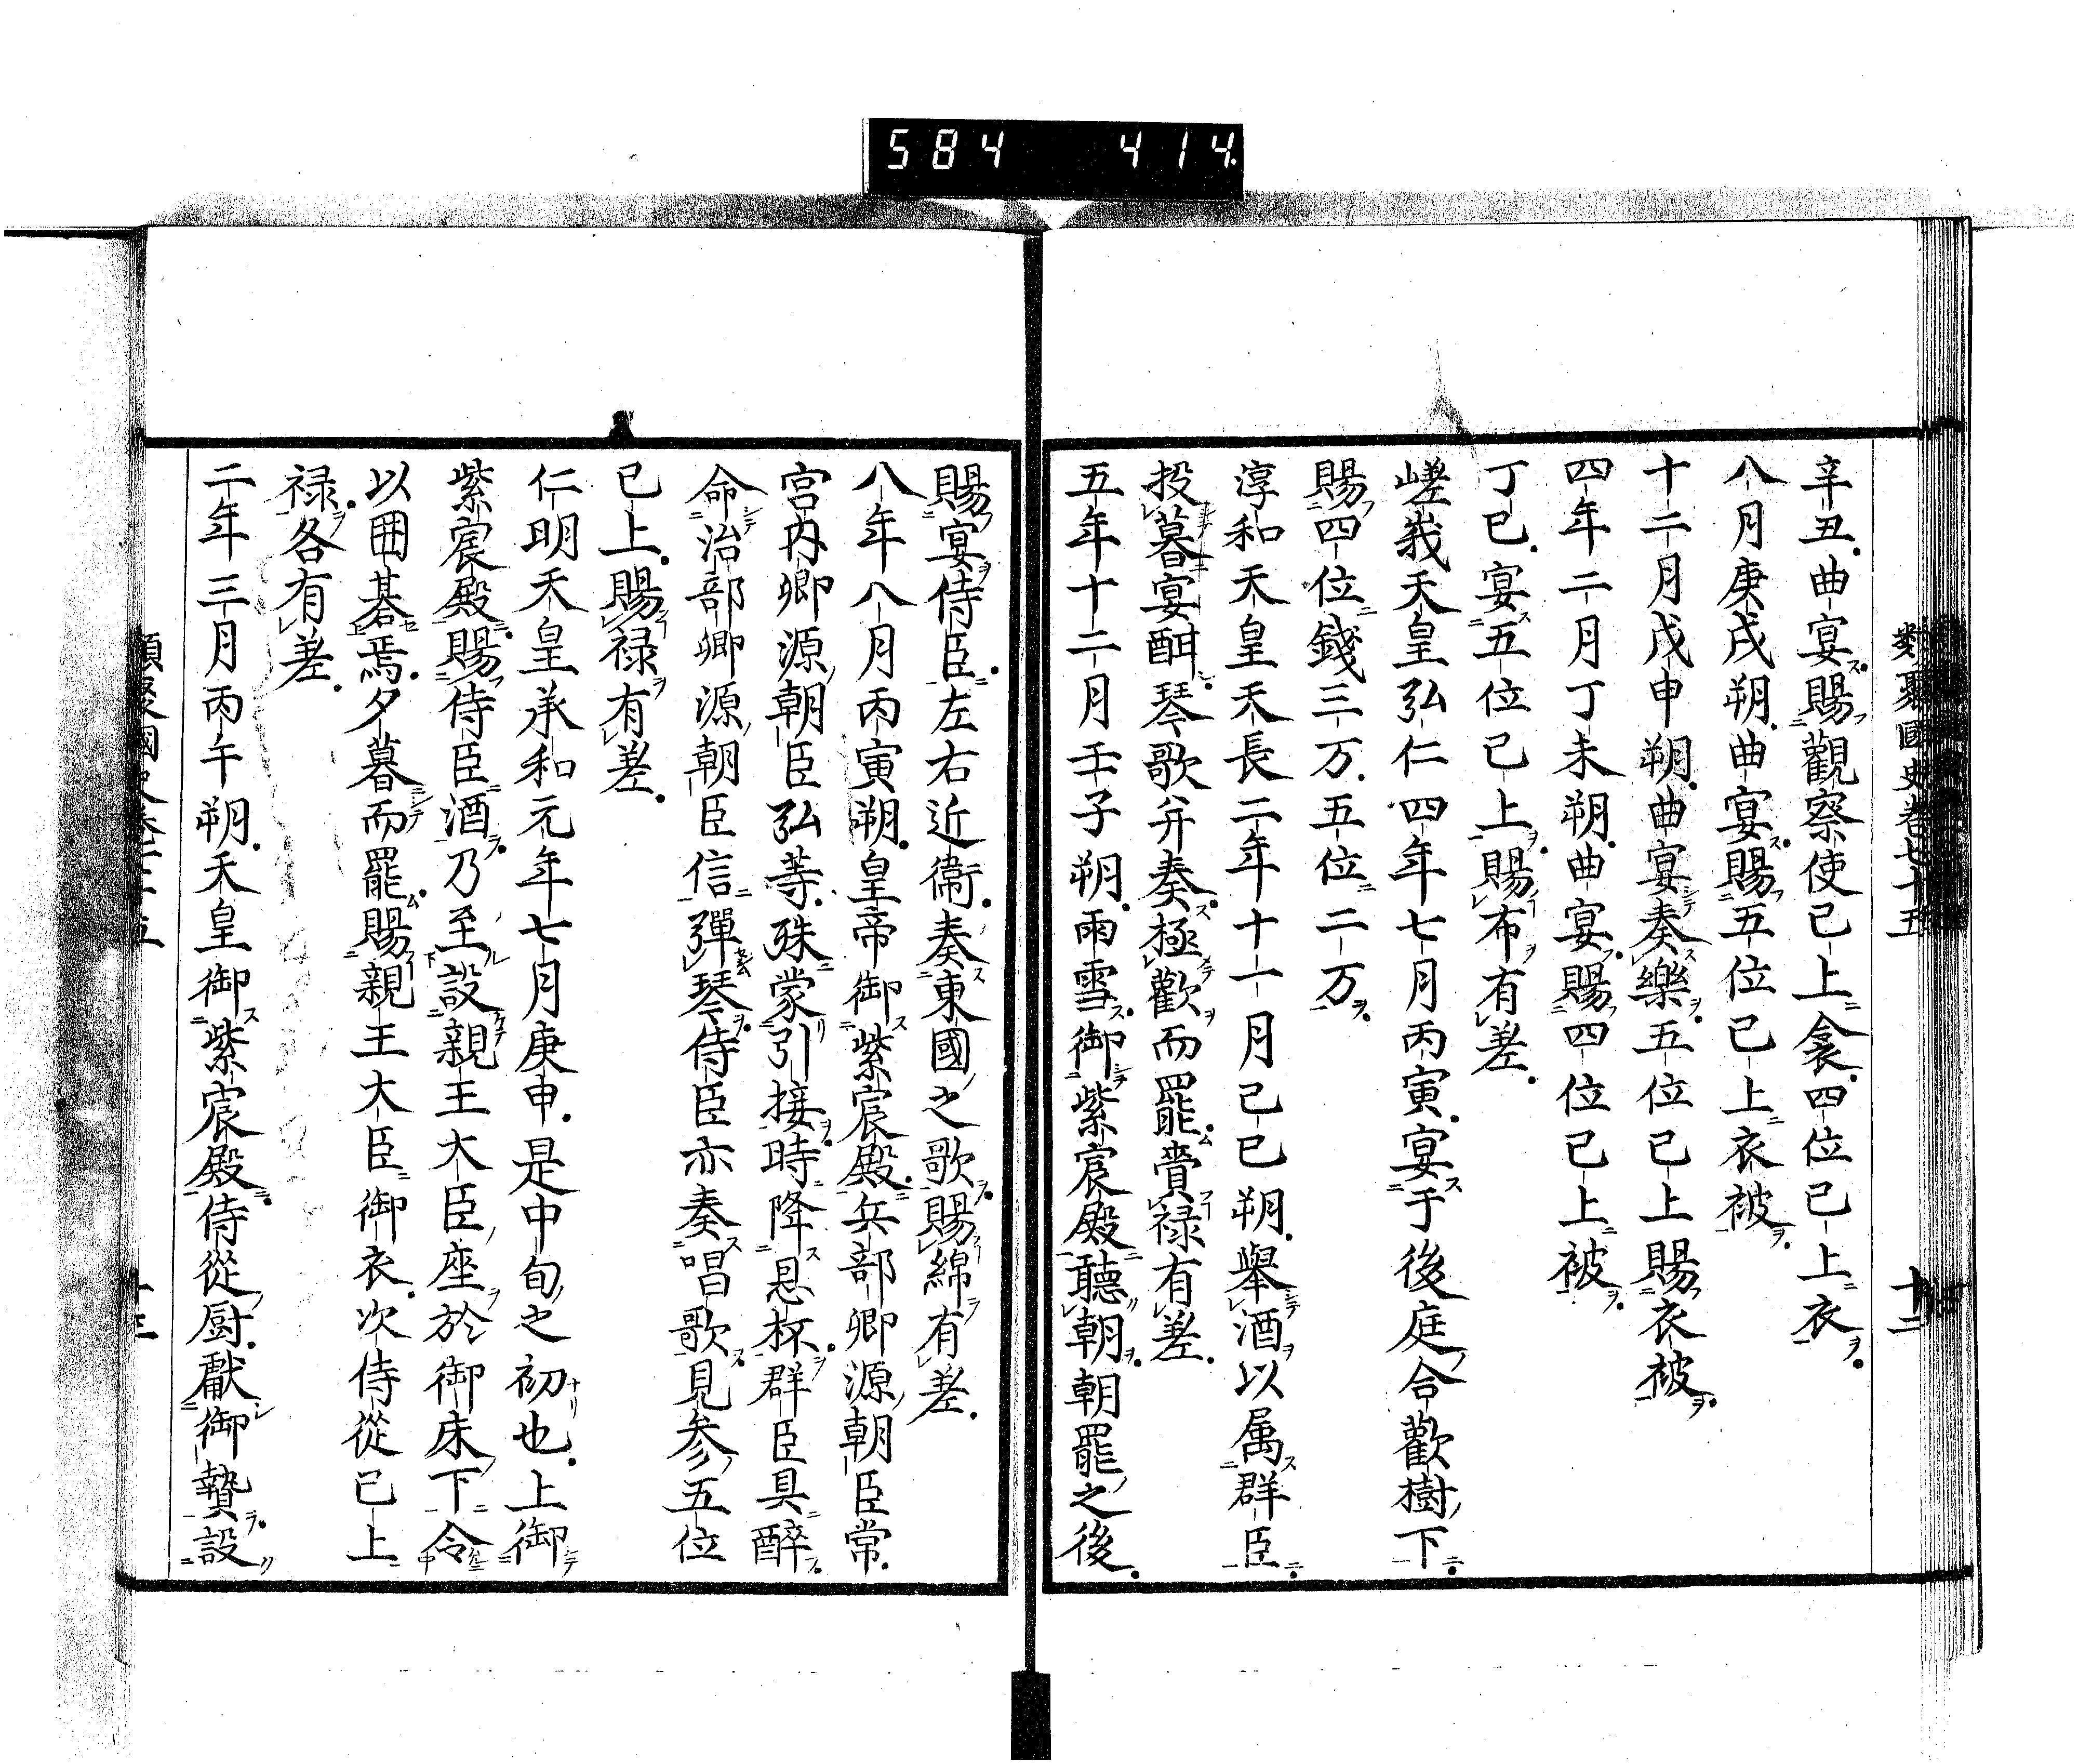 584 414
類聚國史卷七十五
十二
辛丑曲宴賜觀察使已上衾四位已上衣
八月庚戌朔曲宴賜五位已上衣被
十二月戊申朔曲宴奏樂五位已上賜衣被
四年二月丁未朔曲宴賜四位已上被
丁巳宴五位已上賜布有差
嵯峩天皇弘仁四年七月丙寅宴于後庭合歡樹下
賜四位錢三万五位二万
淳和天皇天長二年十一月己巳朔舉酒以属群臣
投暮宴酣琴歌并奏極歡而罷賚禄有差
五年十二月壬子朔雨雪御紫宸殿聽朝朝罷之後
賜宴侍臣左右近衞奏東國之歌賜綿有差
八年八月丙寅朔皇帝御紫宸殿兵部卿源朝臣常
宮内卿源朝臣弘等殊蒙引接時降恩杯群臣具醉
命治部卿源朝臣信彈琴侍臣亦奏唱歌見参五位
已上賜禄有差
仁明天皇承和元年七月庚申是中旬之初也上御
紫宸殿賜侍臣酒乃至設親王大臣座於御床下令
以囲碁焉夕暮而罷賜親王大臣御衣次侍從已上
禄各有差
二年三月丙午朔天皇御紫宸殿侍從厨獻御贄設
類聚國史卷七十五
十三